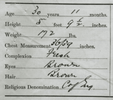 Age 30 years 11 months.
Height 5 feet 9½ inches.
Weight 172 lbs.
Chest Measurement inches.
Complexion Fresh
Eyes Brown
Hair Brown
Religious Denomination C of Eng